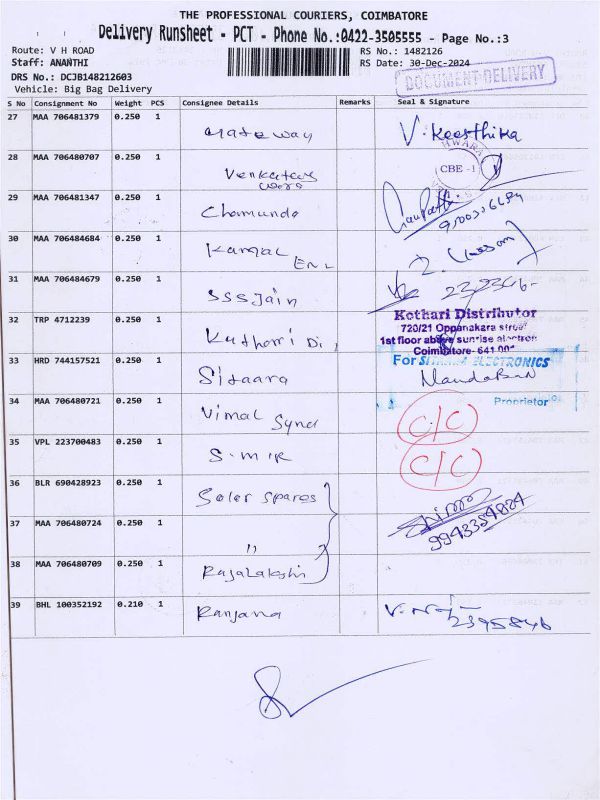 THE PROFESSIONAL COURIERS, COIMBATORE
Delivery Runsheet - PCT - Phone No.:0422-3505555 - Page No.:3
Route: V H ROAD
RS No.: 1482126
Staff: ANANTHI
RS Date: 30-Dec-2024
DRS No.: DCJB148212603
Vehicle: Big Bag Delivery
DOCUMENT DELIVERY
S No Consignment No Weight PCS Consignee Details Remarks Seal & Signature
27 MAA 706481379 0.250 1 Gateway V. Keerthika
28 MAA 706480707 0.250 1 Venkatas
wara
CBE -1
29 MAA 706481347 0.250 1 Chamunda
30 MAA 706484684 0.250 1 Kamal
31 MAA 706484679 0.250 1 SSS Jain
32 TRP 4712239 0.250 1 Kuthari Di
Kothari Distributor
720/21 Oppanakara street
1st floor above sunrise electron
Coimbatore- 641 001
33 HRD 744157521 0.250 1 Sitaara
For SITARA ELECTRONICS
Proprietor
34 MAA 706480721 0.250 1 Vimal Synd C/C
35 VPL 223700483 0.250 1 S.M.R C/C
36 BLR 690428923 0.250 1 Solar Spares
9943354824
37 MAA 706480724 0.250 1 "
38 MAA 706480709 0.250 1 Rajalakshi
39 BHL 100352192 0.210 1 Ranjana
2395846